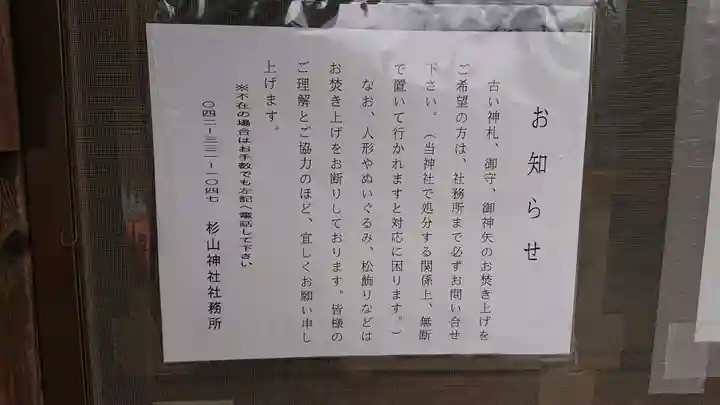 お知らせ
古い神札、御守、御神矢のお焚き上げを
ご希望の方は、社務所まで必ずお問い合せ
下さい。（当神社で処分する関係上、無断
で置いて行かれますと対応に困ります。）
なお、人形やぬいぐるみ、松飾りなどは
お焚き上げをお断りしております。皆様の
ご理解とご協力のほど、宜しくお願い申し
上げます。
※不在の場合はお手数でも左記へ電話して下さい
〇四二－三三一－一〇四七　杉山神社社務所